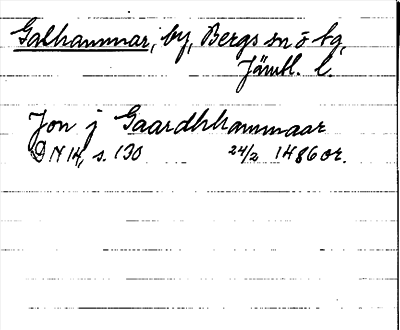 Galhammar, by, Bergs sn ö tg,
Jämtl. l.
Jon j Gaardhhammaar
DN 14, s. 130 24/2 1486 or.